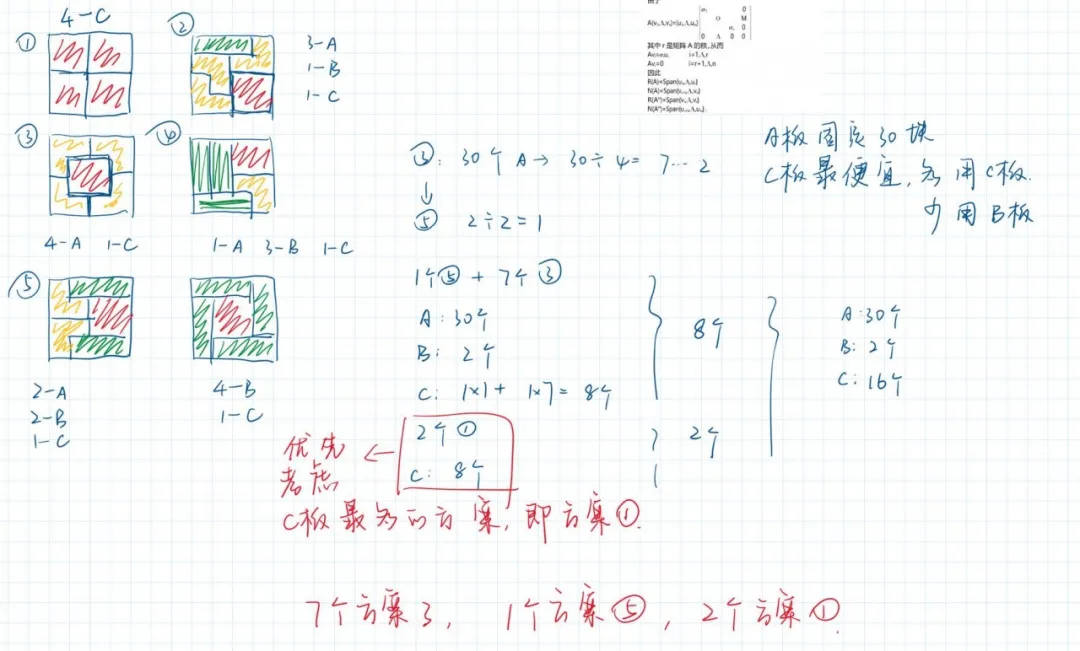 4-C
①
②
3-A
1-B
1-C
③
4-A 1-C
④
1-A 3-B 1-C
⑤
2-A
2-B
1-C
4-B
1-C
其中 r 是矩阵 A 的秩,从而
因此
③: 30个 A → 30÷4= 7…2
↓
⑤ 2÷2=1
1个⑤ + 7个③
A:30个
B: 2个
C: 1×1+ 1×7= 8个
8个
2个①
C: 8个
2个
A:30个
B: 2个
C: 16个
A板固定30块
C板最便宜,多用C板.
少用B板
优先 ←
考虑
C板最多的方案,即方案①.
7个方案3, 1个方案⑤, 2个方案①.